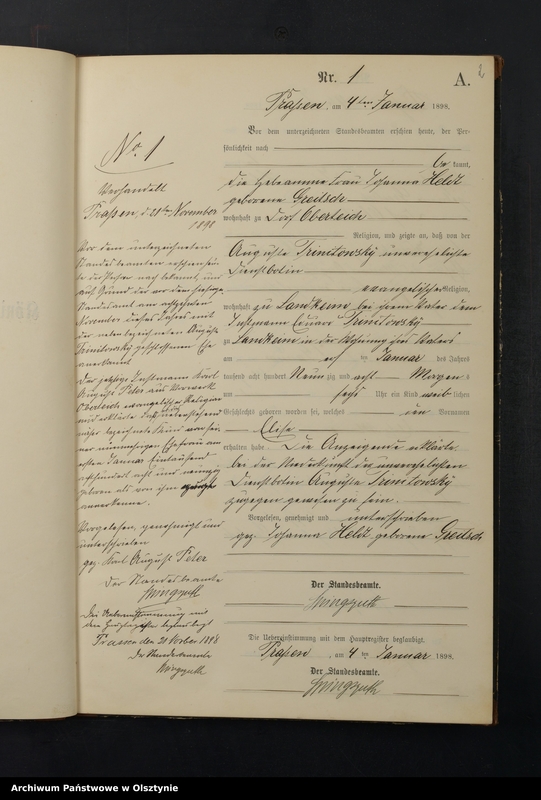 Nr. 1
A.
2
Traßen, am 4ten Januar 1898.
Vor dem unterzeichneten Standesbeamten erschien heute, der Per-
sönlichkeit nach
be kannt,
die Hebeamme Frau Johanna Heldt
geborene Greitsch
wohnhaft zu Dorf Oberteich
Religion, und zeigte an, daß von der
Auguste Trinitowsky unverehelichte
Dienstbotin
evangelischer Religion,
wohnhaft zu Landkeim bei ihrem Vater dem
Instmann Eduard Trinitowsky
zu Landkeim in der Wohnung ihres Vaters
am ersten Januar des Jahres
tausend acht hundert Neun zig und acht Morgens
um sechs Uhr ein Kind weib lichen
Geschlechts geboren worden sei, welches den Vornamen
Elise
erhalten habe. Die Anzeigende erklärte
bei der Niederkunft der unverehelichten
Dienstbotin Auguste Trinitowsky
zugegen gewesen zu sein.
Vorgelesen, genehmigt und unterschrieben
gez. Johanna Heldt geborene Greitsch
Der Standesbeamte.
Die Uebereinstimmung mit dem Hauptregister beglaubigt.
Traßen, am 4ten Januar 1898.
Der Standesbeamte.
No. 1
Verhandelt
Traßen, d. 28ten November
1898
Vor dem unterzeichneten
Standesbeamten erschien heu-
te der Person nach bekannt, und
auf Grund der vor dem hiesige
Standesamt am achtzehnten
November dieses Jahres mit
der neben bezeichneten Auguste
Trinitowsky geschlossenen Ehe
anerkannt
Der jetzige Instmann Karl
August Peter aus Vorwerk
Oberteich evangelischer Religion
und erklärte daß er nebenstehend
näher bezeichnete Kind von sei-
ner nunmehrigen Ehefrau am
ersten Januar Eintausend
achthundert acht und neunzig
geboren als von ihm erzeugt
anerkenne.
Vorgelesen, genehmigt und
unterschrieben
gez. Karl August Peter
Der Standesbeamte
Die Uebereinstimmung mit
dem Hauptregister beglaubigt
Der Standesbeamte
Archiwum Państwowe w Olsztynie